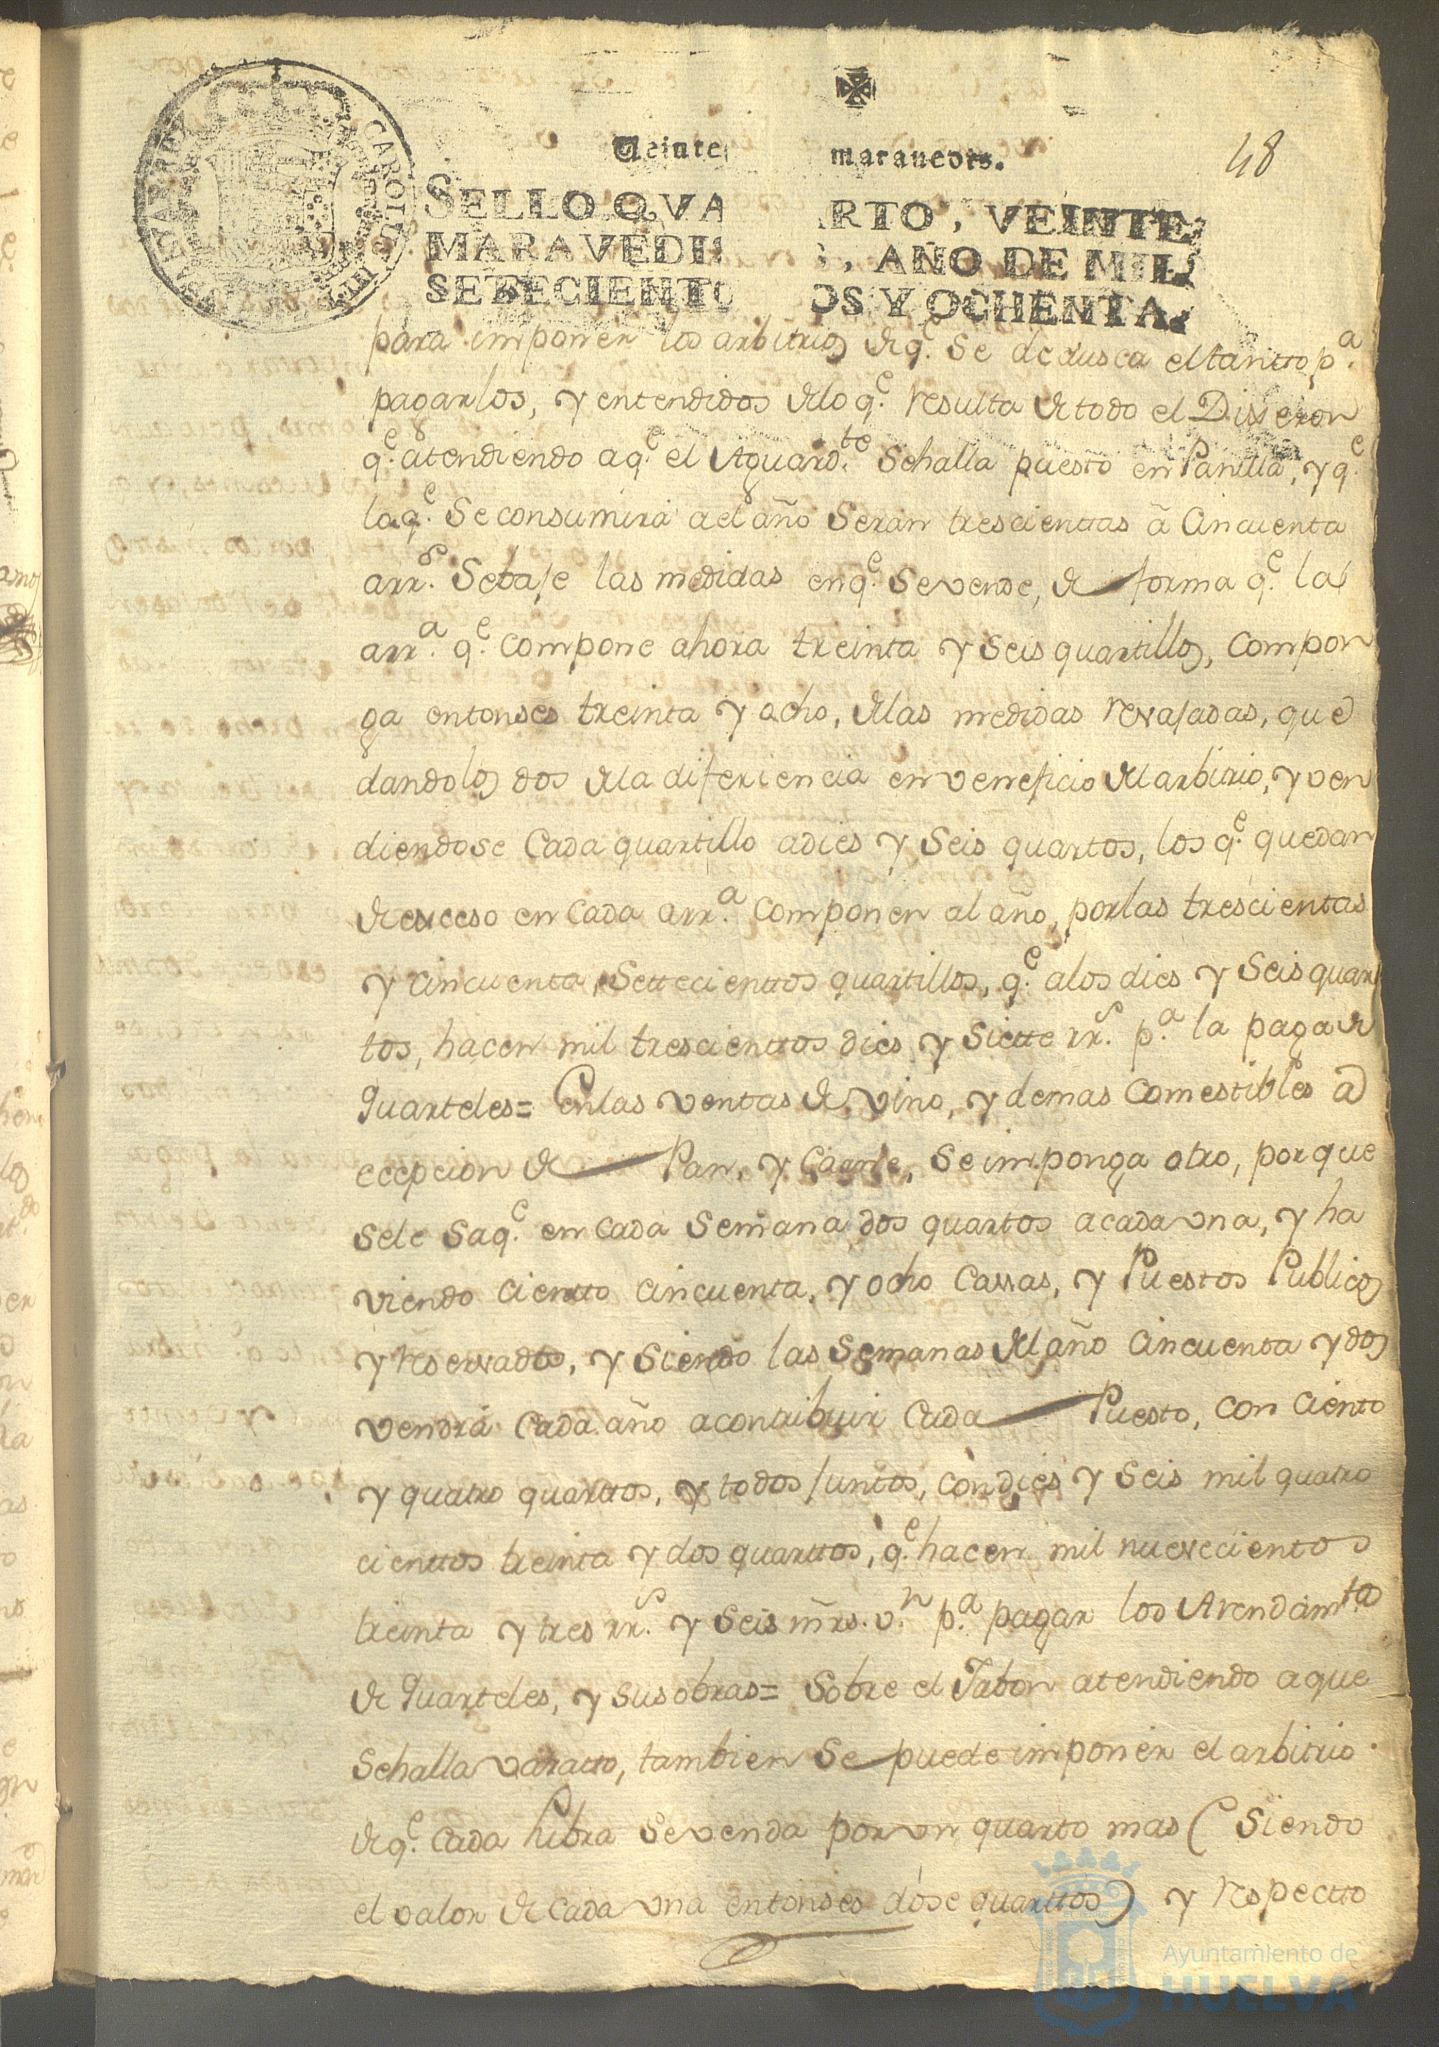 48
Veinte maravedis.
SELLO QVARTO, VEINTE
MARAVEDIS, AÑO DE MIL
SETECIENTOS Y OCHENTA.
CAROLUS III
para imponer los arbitrios de q.e se dedusca el tantto p.a
pagarlos, y entendidos de lo q.e resulta de todo el Dixeron
q.e atendiendo a q.e el Aguard.te se halla puesto en Panilla, y q.e
la q.e se consumirá a el año serán trescienttas â cincuenta
arr.s se baje las medidas en q.e se vende, de forma q.e la
arr.a q.e compone ahora treinta y seis quartillos, compon
ga entonses treinta y ocho, de las medidas revajadas, que
dando los dos de la diferiencia en veneficio del arbitrio, y ven
diendose cada quartillo a dies y seis quartos, los q.e quedan
de exceso en cada arr.a componen al año, por las trescientas
y cincuenta, settecienttos quartillos, q.e a los dies y seis quar
tos, hacen mil trescienttos dies y siette rr.s p.a la paga de
Quarteles= En las ventas de vino, y demas comestibles a
ecepcion de Pan, y Carne, se imponga otro, por que
se le saq.e en cada semana dos quartos a cada una, y ha
viendo cientto cincuenta, y ocho cassas, y Puestos Publicos
y reservados, y siendo las semanas del año cincuenta y dos
vendrá cada año a contribuir cada Puesto, con ciento
y quatro quarttos, y todos juntos, con dies y seis mil quatro
cienttos treinta y dos quarttos, q.e hacen mil nuevecientos
treinta y tres rr.s y seis mrs. v.n p.a pagar los Arendam.tos
de Quarteles, y sus obras= Sobre el Jabon atendiendo a que
se halla varatto, tambien se puede imponer el arbitrio
de q.e cada libra se venda por un quarto mas (siendo
el valor de cada una entonses dose quarttos) y respectto
Ayuntamiento de
HUELVA